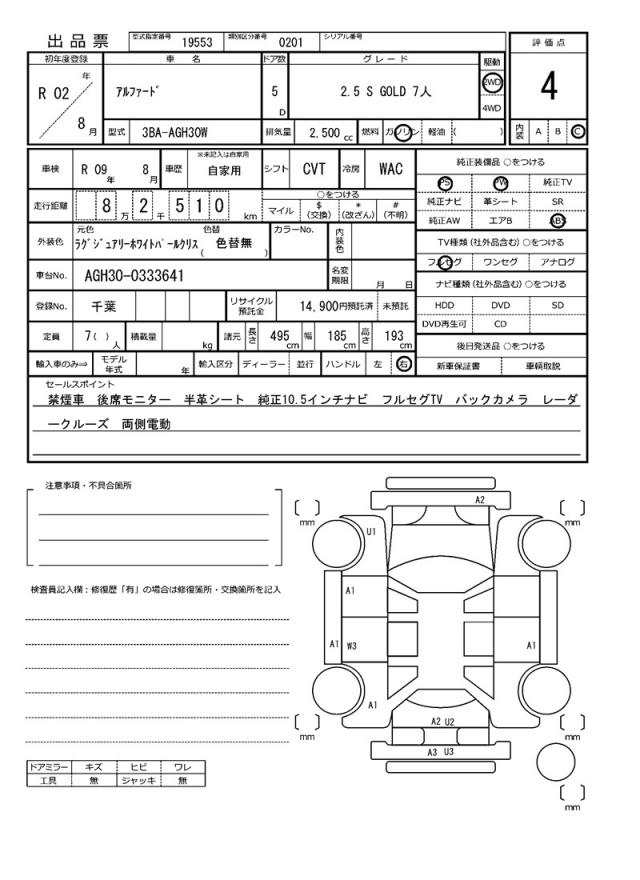 出品票
型式指定番号 19553 類別区分番号 0201 シリアル番号
評価点
初年度登録 車名 ドア数 グレード 駆動
R 02 年 8 月 アルファード 5 D 2.5 S GOLD 7人 2WD 4WD
4
型式 3BA-AGH30W 排気量 2,500 cc 燃料 ガソリン 軽油 ( )
内装 A B C
車検 R 09 年 8 月 車歴 ※未記入は自家用 自家用 シフト CVT 冷房 WAC
純正装備品 ○をつける
PS PW 純正TV
純正ナビ 革シート SR
純正AW エアB ABS
走行距離 8 万 2 千 5 1 0 km
○をつける
マイル $(交換) *(改ざん) #(不明)
TV種類 (社外品含む) ○をつける
フルセグ ワンセグ アナログ
外装色 元色 ラグジュアリーホワイトパールクリス 色替 ( 色替無 ) カラーNo. 内装色
ナビ種類 (社外品含む) ○をつける
HDD DVD SD
DVD再生可 CD
車台No. AGH30-0333641 名変期限 月 日
登録No. 千葉 リサイクル預託金 14,900円預託済 未預託
定員 7( ) 人 積載量 kg 諸元 長さ 495 cm 幅 185 cm 高さ 193 cm
後日発送品 ○をつける
新車保証書 車輌取説
輸入車のみ⇒ モデル年式 年 輸入区分 ディーラー 並行 ハンドル 左 右
セールスポイント
禁煙車 後席モニター 半革シート 純正10.5インチナビ フルセグTV バックカメラ レーダ
ークルーズ 両側電動
注意事項・不具合箇所
検査員記入欄：修復歴「有」の場合は修復箇所・交換箇所を記入
A2
mm mm
U1
A1
A1 W3 A1
A1
A2 U2
mm mm
A3 U3
mm
ドアミラー キズ ヒビ ワレ
工具 無 ジャッキ 無